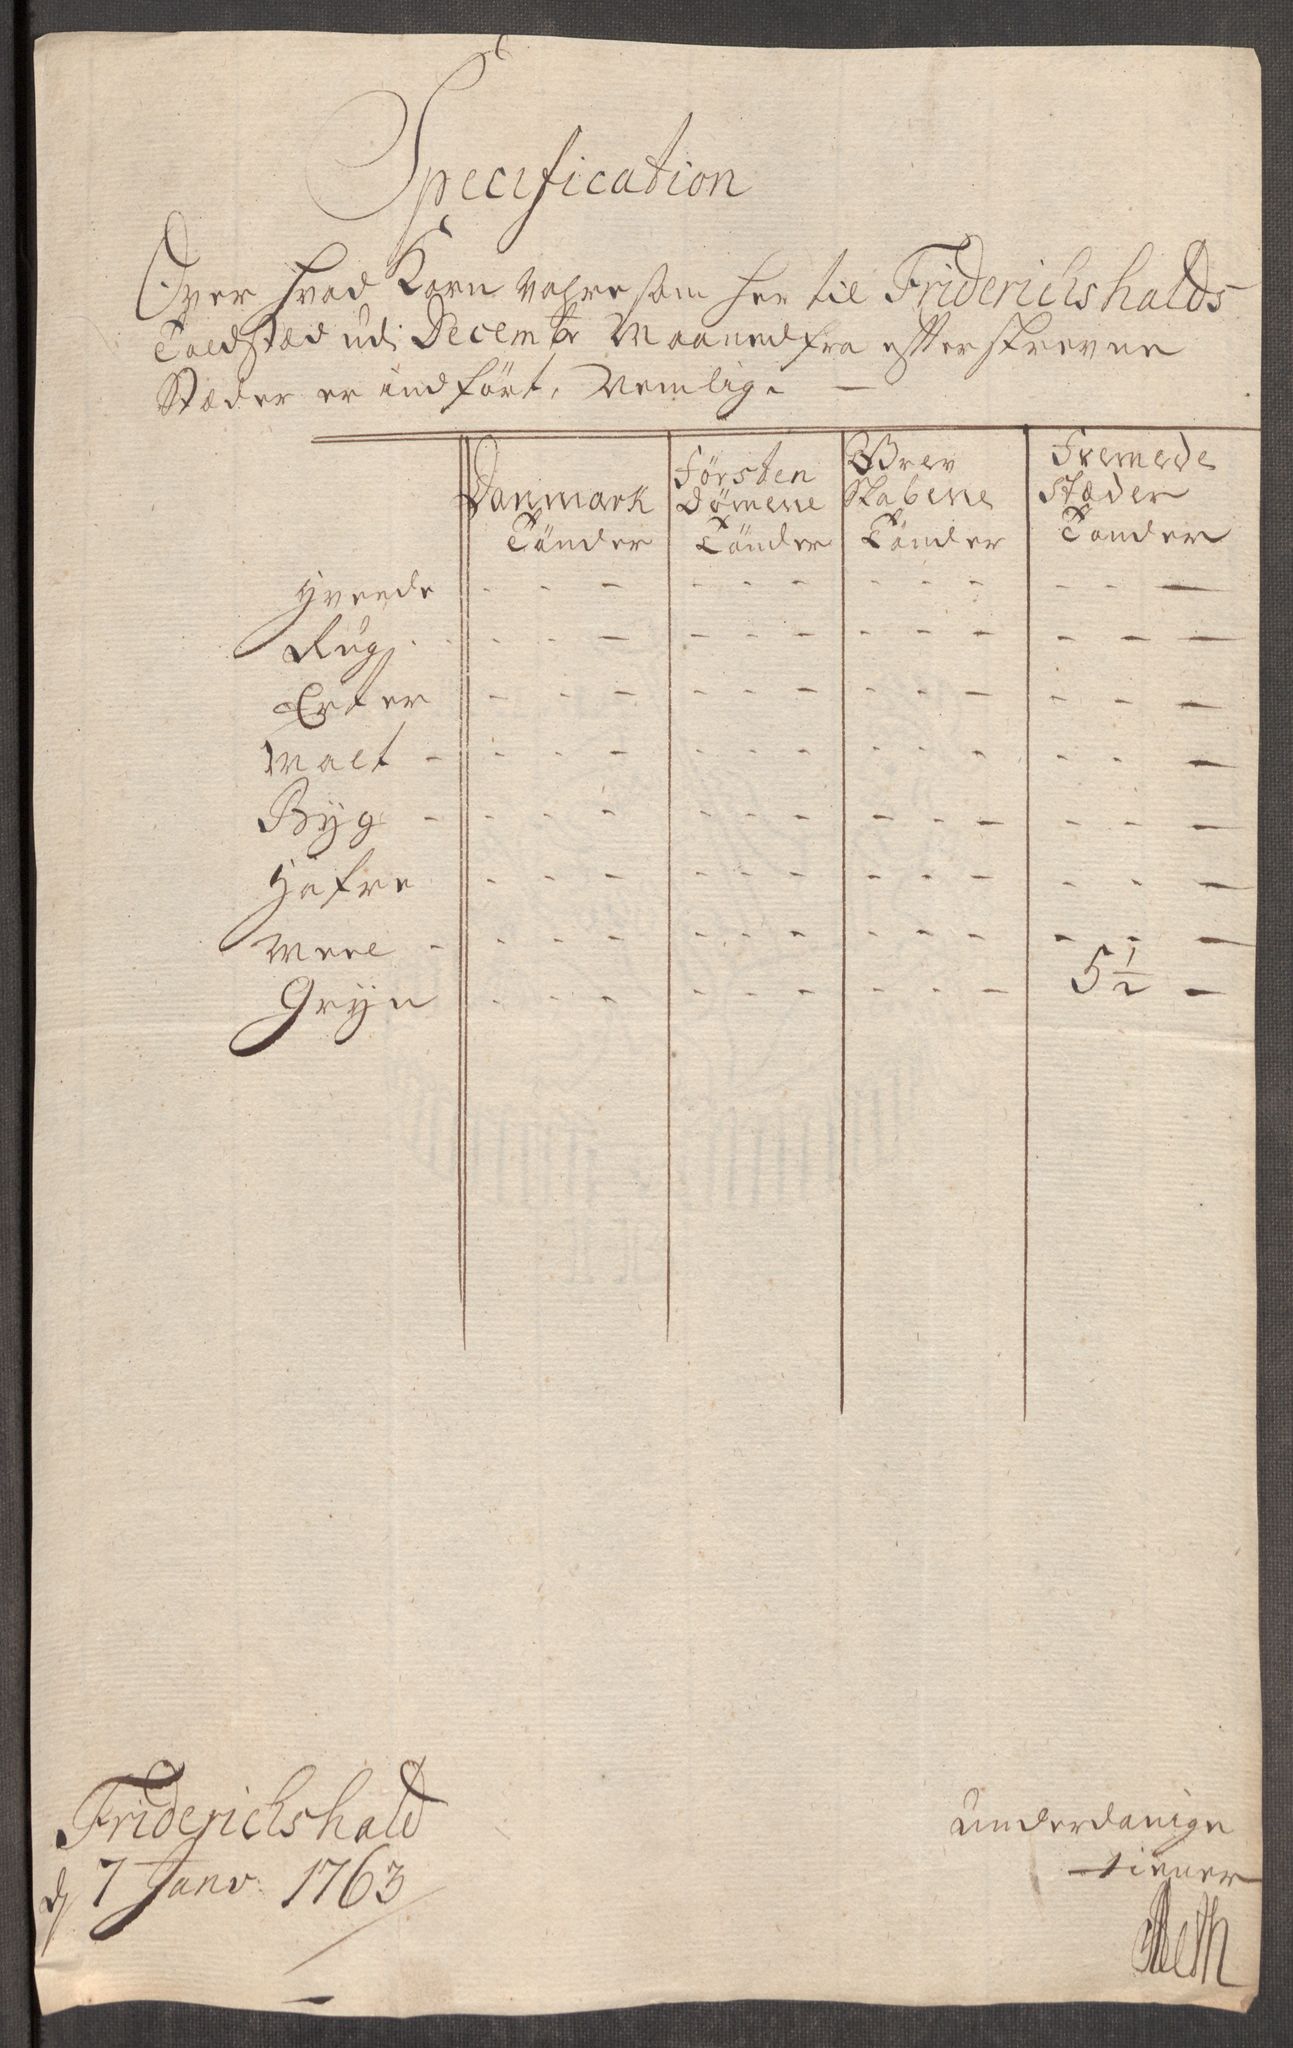 Specification
Over hvad Korn vahre som her til Friderichshalds
Toldstæd udi Decembr Maaned fra efterskrevne
Stæder er indført, Nemlig. —
Danmark Tønder | Førsten dømene Tønder | Grev skabene Tønder | Fremede stæder Tønder
Hveede - - - | - - - | - - - | - - —
Rug - - - | - - - | - - - | - - —
Erter - - - | - - - | - - - | - - —
Malt - - - - | - - - | - - - | - - —
Byg - - - - | - - - | - - - | - - —
Hafre - - - | - - - | - - - | - - —
Meel - - - - | - - - | - - - | - - —
Gryn - - - | - - - | - - - | 5 1/2 —
Friderichshald
d 7 Janv: 1763
underdanige
tiener